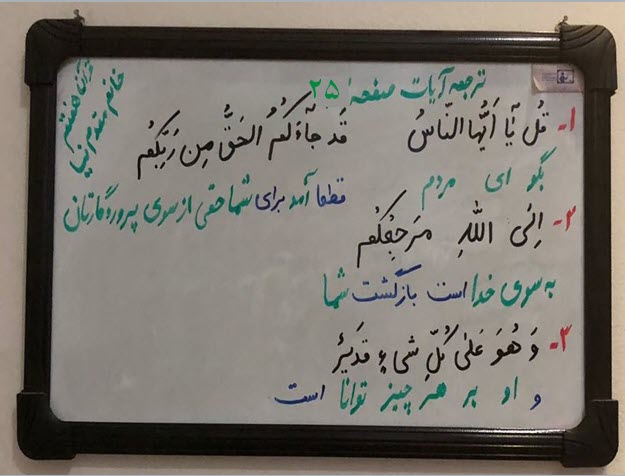 ترجمه آیات صفحهٔ ۲۵
قرآن هفتم
خانم مقدم نیا
۱- قُل یٰآ اَیُّهَا النّاسُ قَد جآءَکُمُ الحَقُّ مِن رَبِّکُم
بگو ای مردم قطعا آمد برای شما حقی از سوی پروردگارتان
۲- اِلَی اللهِ مَرجِعُکُم
به سوی خدا است بازگشت شما
۳- وَ هُوَ عَلیٰ کُلِّ شَیءٍ قَدیرٌ
و او بر هر چیز توانا است